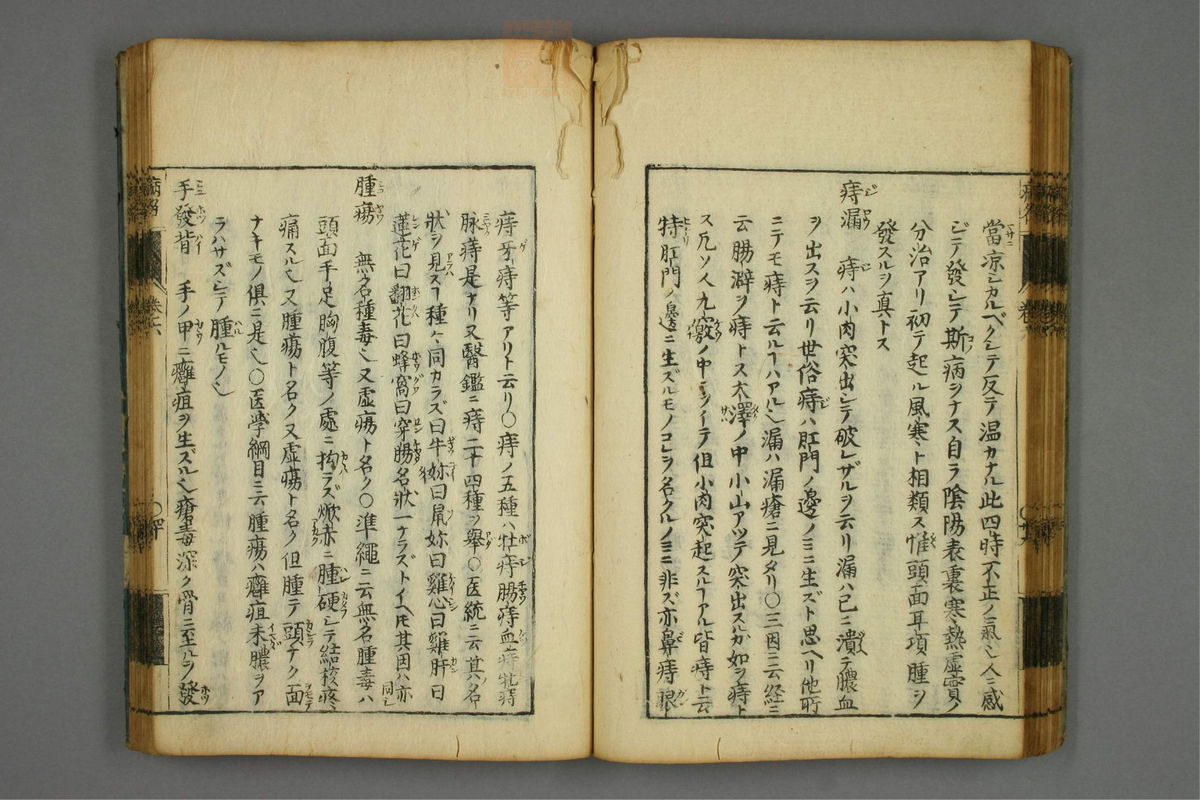 當凉シカルベクシテ反テ温カナル此四時不正ノ氣也人ニ感
ジテノ發シテ斯病ヲナス自ラ陰陽表裏寒熱虚實ノ
分治アリ初テ起ル風寒ト相類ス惟頭面耳項腫ヲ
發スルヲ真トス
痔漏 痔ハ小肉突出シテ破レザルヲ云リ漏ハ已ニ潰テ膿血
ヲ出スヲ云リ世俗痔ハ肛門ノ邊ノミニ生ズト思ヘリ他所
ニテモ痔ト云ルヿハアル也漏ハ漏瘡ニ見タリ〇三因ニ云経ニ
云腸澼ヲ痔トス大澤ノ中小山アツテ突出スルガ如ヲ痔ト
ス凡ソ人九竅ノ中ニヲイテ但小肉突起スルヿアル皆痔ト云
特肛門ノ邊ニ生ズルモノコレヲ名クルノミニ非ズ亦鼻痔眼
痔牙痔等アリト云リ〇痔ノ五種ハ牡痔腸痔血痔牝痔
脉痔是ナリ又醫鑑ニ痔二十四種ヲ舉〇医統ニ云其名
狀ヲ見スヿ種々同カラズ曰牛妳曰鼠妳曰雞心曰雞肝曰
蓮花曰翻花曰蜂窩曰穿腸名狀一ナラズトイヘ𪜈其因ハ亦同シ
腫瘍 無名種毒也又虚瘍ト名ク〇準繩ニ云無名腫毒ハ
頭面手足胸腹等ノ處ニ拘ラズ焮赤ニ腫硬シテ結核疼
痛スル也又腫瘍ト名ク又虚瘍ト名ク但腫テ頭ナク面
ナキモノ俱ニ是也〇医学綱目ニ云腫瘍ハ癰疽未膿ヲア
ラハサズシテ腫ルモノ也
手發背 手ノ甲ニ癰疽ヲ生ズル也瘡毒深ク骨ニ至ルヲ發
病名
卷六